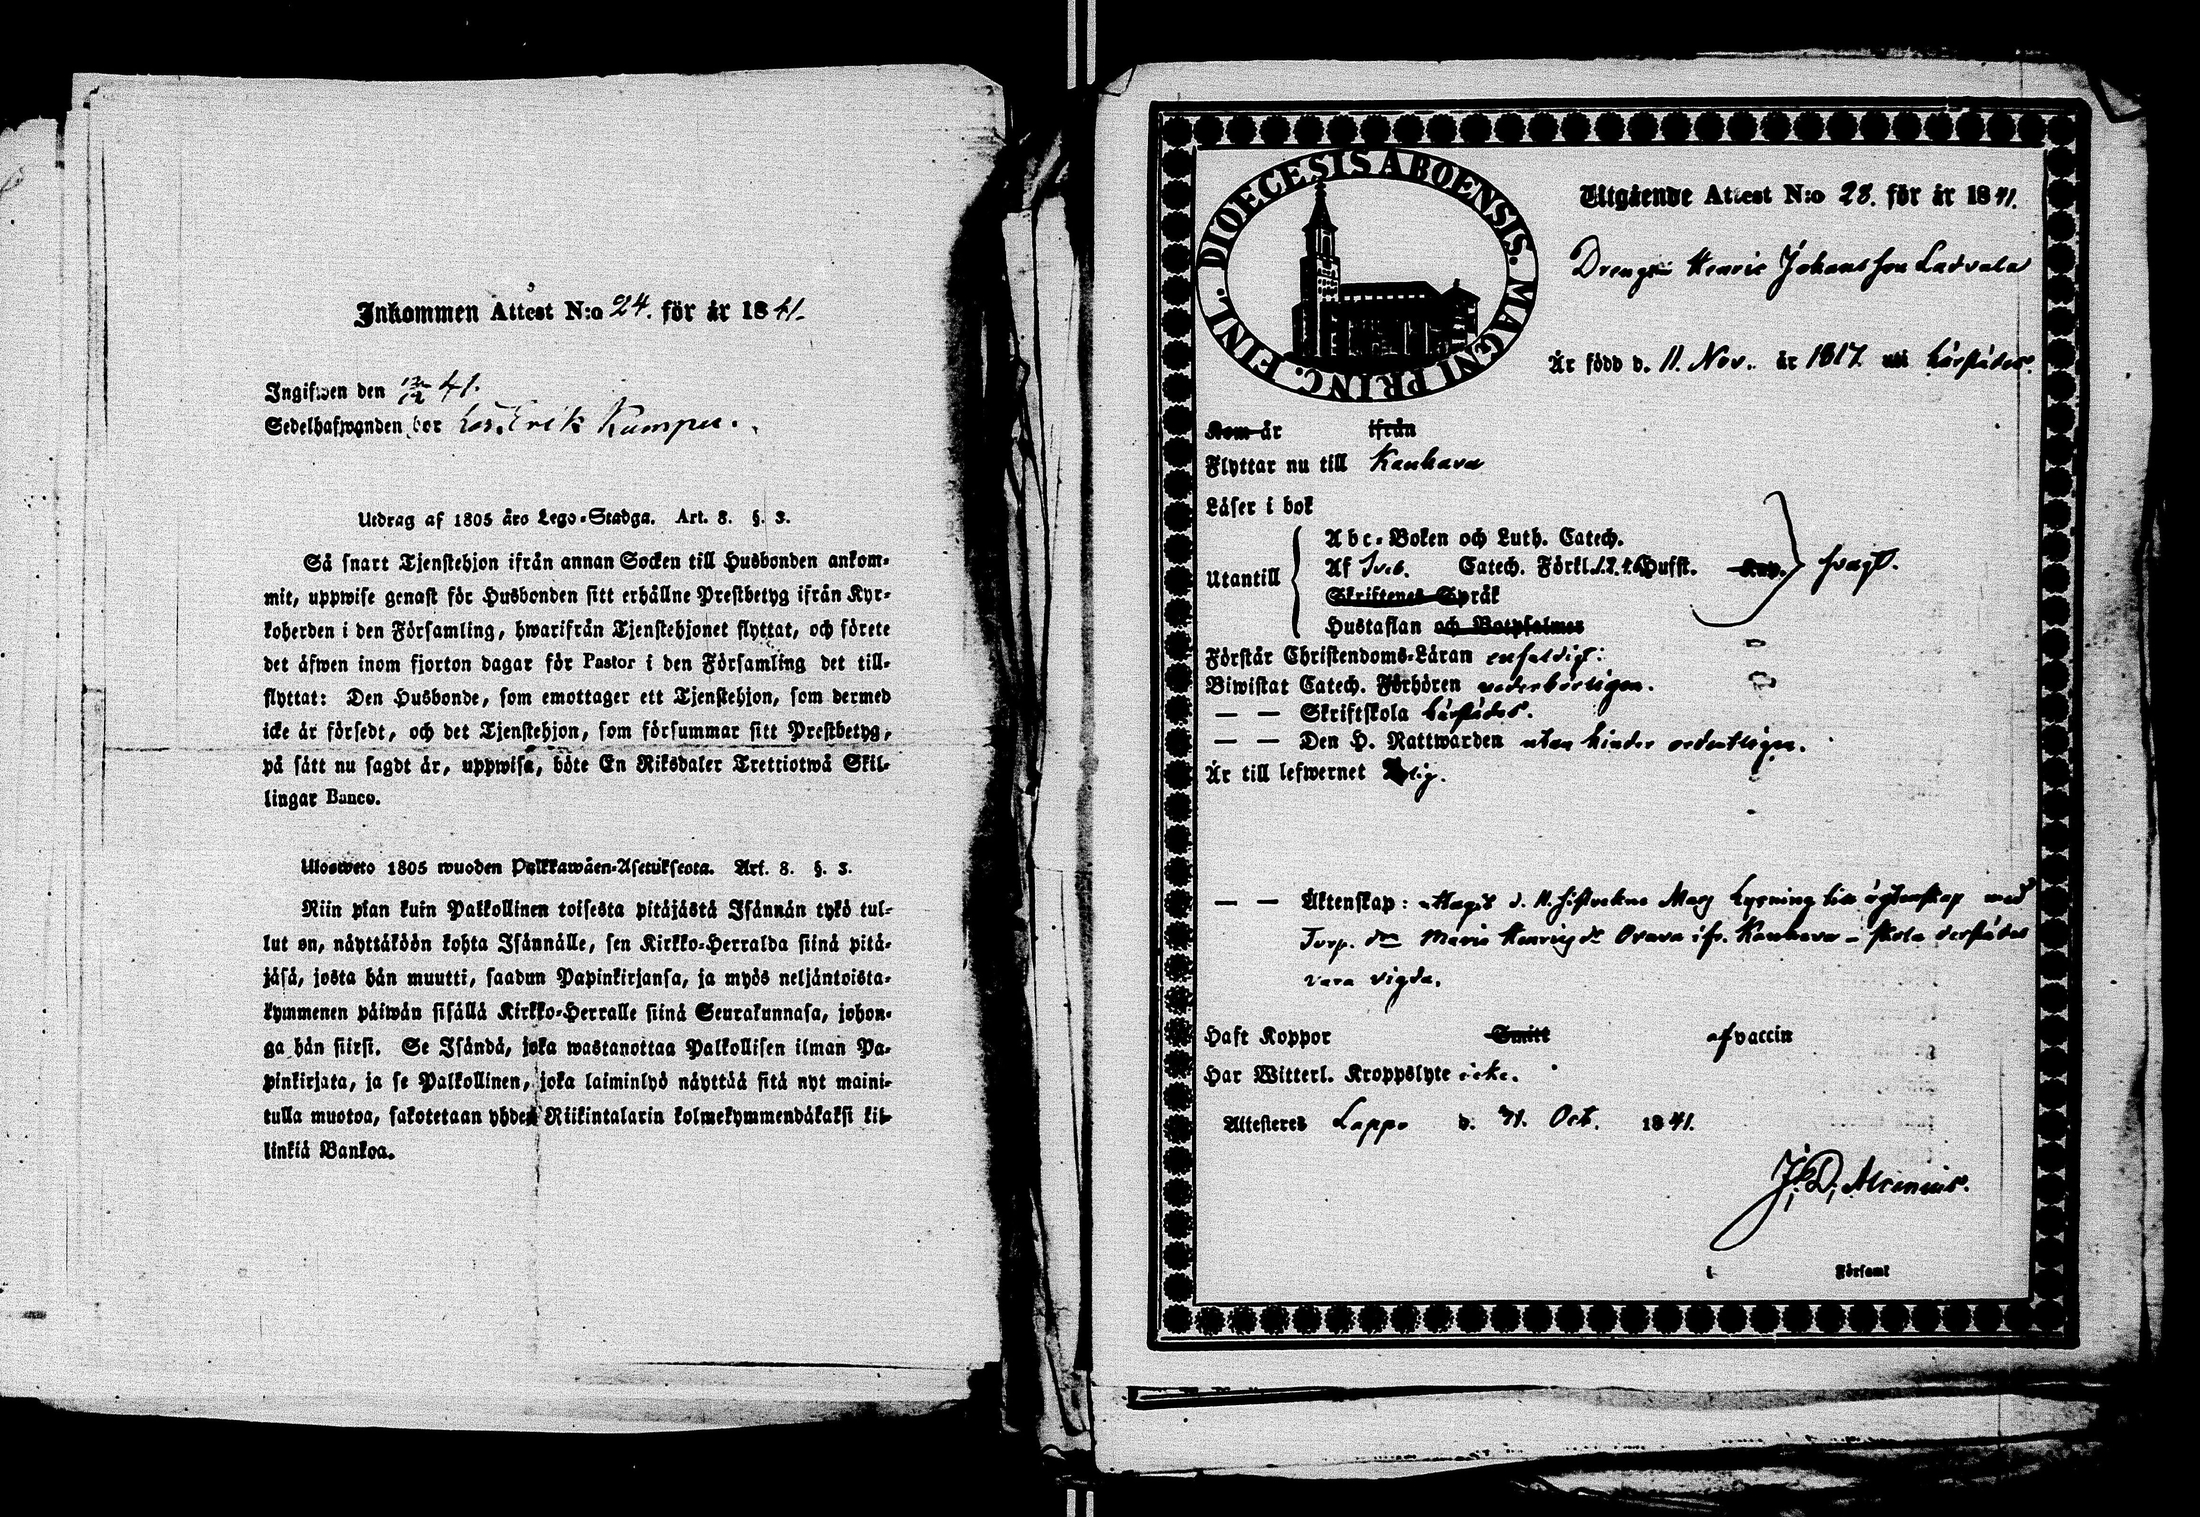 Inkommen Attest N:o 24. för år 1841.
Ingifwen den 12/12 41.
Sedelhafwanden bor hos Erik Kamppi.
Utdrag af 1805 års Lego-Stadga. Art. 8. §. 3.
Så snart Tjenstehjon ifrån annan Socken till Husbonden ankom-
mit, uppwise genast för Husbonden sitt erhållne Prestbetyg ifrån Kyr-
koherden i den Församling, hwarifrån Tjenstehjonet flyttat, och förete
det äfwen inom fjorton dagar för Pastor i den Församling det till-
flyttat: Den Husbonde, som emottager ett Tjenstehjon, som dermed
icke är försedt, och det Tjenstehjon, som försummar sitt Prestbetyg,
på sätt nu sagdt är, uppwisa, böte En Riksdaler Trettiotwå Skil-
lingar Banco.
Ulosweto 1805 wuoden Palkkawäen-Asetuksesta. Art. 8. §. 3.
Niin pian kuin Palkollinen toisesta pitäjästä Isännän tykö tul-
lut on, näyttäköön kohta Isännälle, sen Kirkko-Herralda siinä pitä-
jäsä, josta hän muutti, saadun Papinkirjansa, ja myös neljäntoista-
kymmenen päiwän sisällä Kirkko-Herralle siinä Seurakunnasa, johon-
ga hän siirsi. Se Isändä, joka wastanottaa Palkollisen ilman Pa-
pinkirjata, ja se Palkollinen, joka laiminlyö näyttää sitä nyt maini-
tulla muotoa, sakotetaan yhden Riikintalarin kolmekymmendäkaksi kil-
linkiä Bankoa.
DIOECESIS ABOENSIS. MAGNI PRINC. FINL.
Utgående Attest N:o 28. för år 1841.
Drengen Henric Johansson Ladvala
Är född d. 11. Nov. år 1817. uti härstädes.
Kom år ifrån
Flyttar nu till Kauhava
Läser i bok
Abc-Boken och Luth. Catech.
Utantill Af Sveb. Catech. Förkl. Hufst. Kap. svagt.
Skriftenes Språk
Hustaflan och Botpsalmer
Förstår Christendoms-Läran enfaldigt:
Biwistat Catech. Förhören vederbörligen.
— — Skriftskola härstädes.
— — Den H. Nattwarden utan hinder ordentligen.
Är till lefwernet
— — Äktenskap: Lysning till ägtenskap med
Torp. Maria Orava ifr. Kauhava – skola derstädes
vara vigda.
Haft Koppor Smitt af vaccin
Har Witterl. Kroppslyte icke.
Attesteres Lappo d. 31. Oct. 1841.
J. D. Alcenius.
i Församl